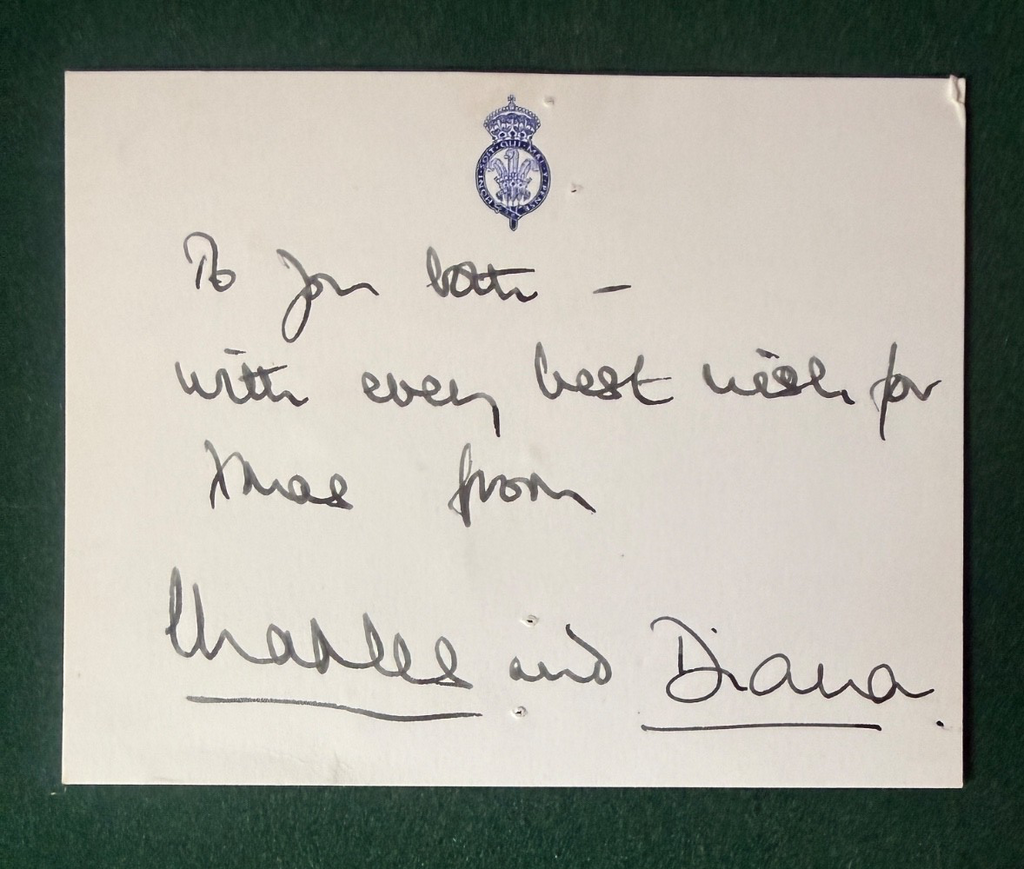 HONI·SOIT·QUI·MAL·Y·PENSE
To you both –
with every best wish for
Xmas from
Charles and Diana.